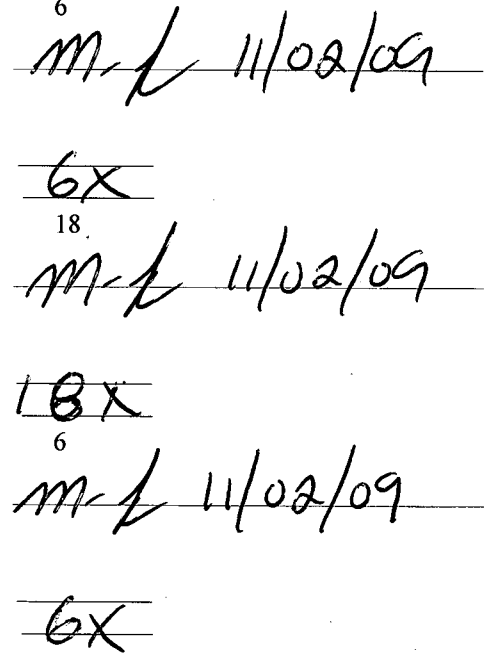 6
11/02/09
6x
18
11/02/09
18x
6
11/02/09
6x